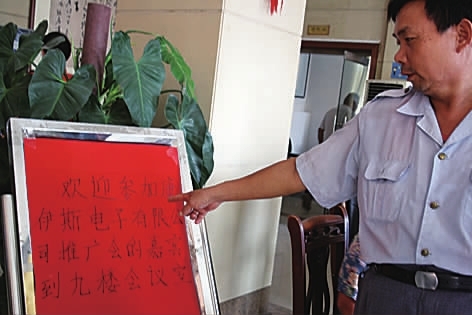 欢迎参加
伊斯电子有限公
司推广会的嘉宾
到九楼会议室